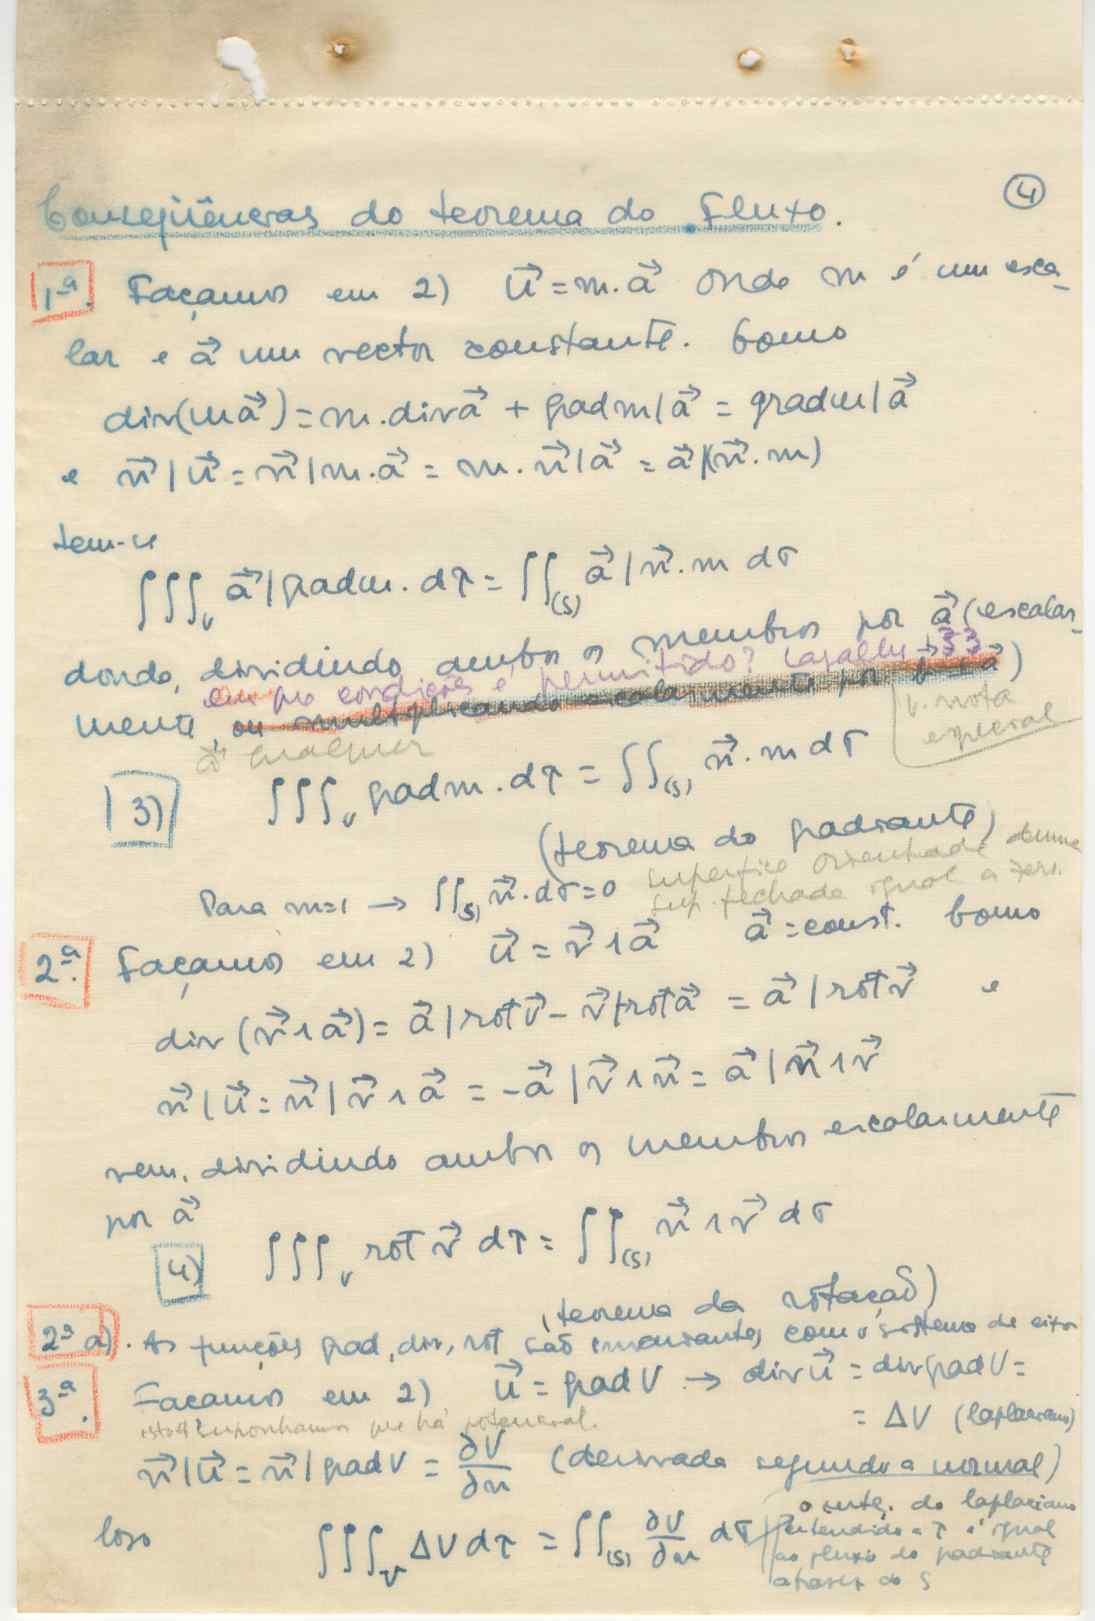 ④
Conseqüências do teorema do fluxo.
1ª. Façamos em 2) u⃗ = m.a⃗ onde m é um esca-
lar e a⃗ um vector constante. Como
div(m a⃗) = m.div a⃗ + grad m | a⃗ = grad m | a⃗
e n⃗ | u⃗ = n⃗ | m.a⃗ = m.n⃗ | a⃗ = a⃗ |(n⃗.m)
tem-se
∫∫∫_V a⃗ | grad m. dτ = ∫∫_(S) a⃗ | n⃗.m dσ
donde, dividindo ambos os membros por a⃗ (escalar-
em que condições é permitido? → 33
mente, ou multiplicando escalarmente por a⃗)
v. nota
especial
a⃗ qualquer
13) ∫∫∫_V grad m. dτ = ∫∫_(S) n⃗.m dσ
(teorema do gradiante)
Para m=1 → ∫∫_(S) n⃗.dσ=0 superfície orientada duma
sup. fechada igual a zero.
2ª. Façamos em 2) u⃗ = v⃗ ∧ a⃗ a⃗ = const. Como
div (v⃗ ∧ a⃗) = a⃗ | rot v⃗ - v⃗ | rot a⃗ = a⃗ | rot v⃗ e
n⃗ | u⃗ = n⃗ | v⃗ ∧ a⃗ = -a⃗ | v⃗ ∧ n⃗ = a⃗ | n⃗ ∧ v⃗
vem, dividindo ambos os membros escalarmente
por a⃗
4) ∫∫∫_V rot v⃗ dτ = ∫∫_(S) n⃗ ∧ v⃗ dσ
(teorema da rotação)
2ª a). As funções grad, div, rot são invariantes com o sistema de eixos
3ª. Façamos em 2) u⃗ = grad V → div u⃗ = div grad V =
= ΔV (laplaciano)
isto é suponhamos que há potencial.
n⃗ | u⃗ = n⃗ | grad V = ∂V/∂n (derivada segundo a normal)
logo ∫∫∫_V ΔV dτ = ∫∫_(S) ∂V/∂n dσ
o integ. do laplaciano
estendido a τ é igual
ao fluxo do gradiante
através do S